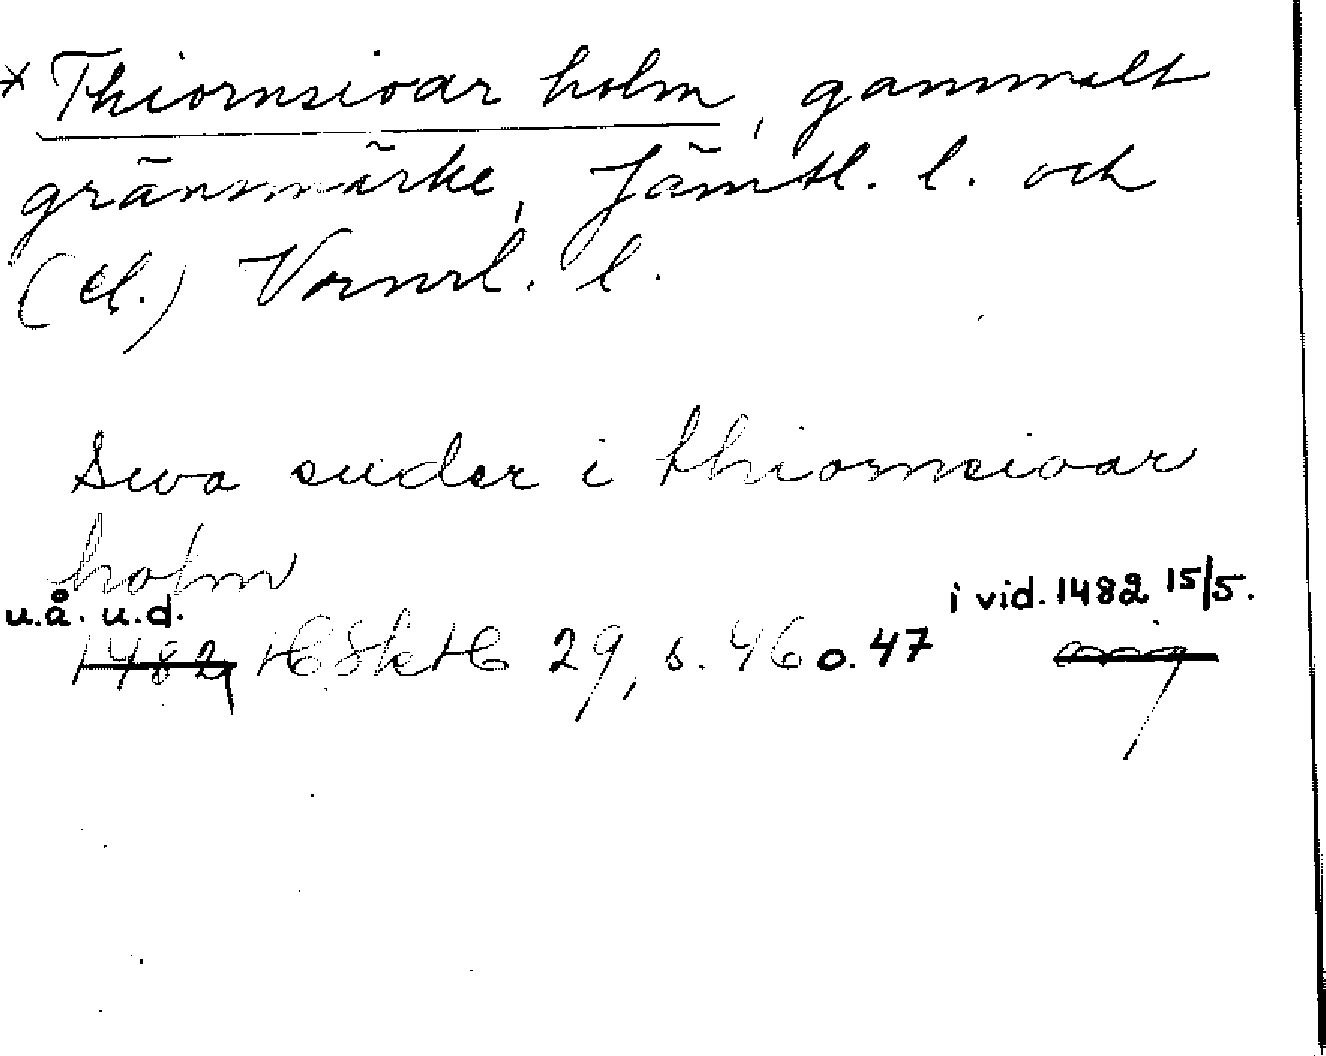 * Thiornsioar holm, gammalt
gränsmärke, Jämtl. l. och
(el.) Vrmrl. l.
Swa suder i thiornsioar
holm
u.å. u.d. i vid. 1482 15/5.
1482 HSkH 29, s. 46 o. 47